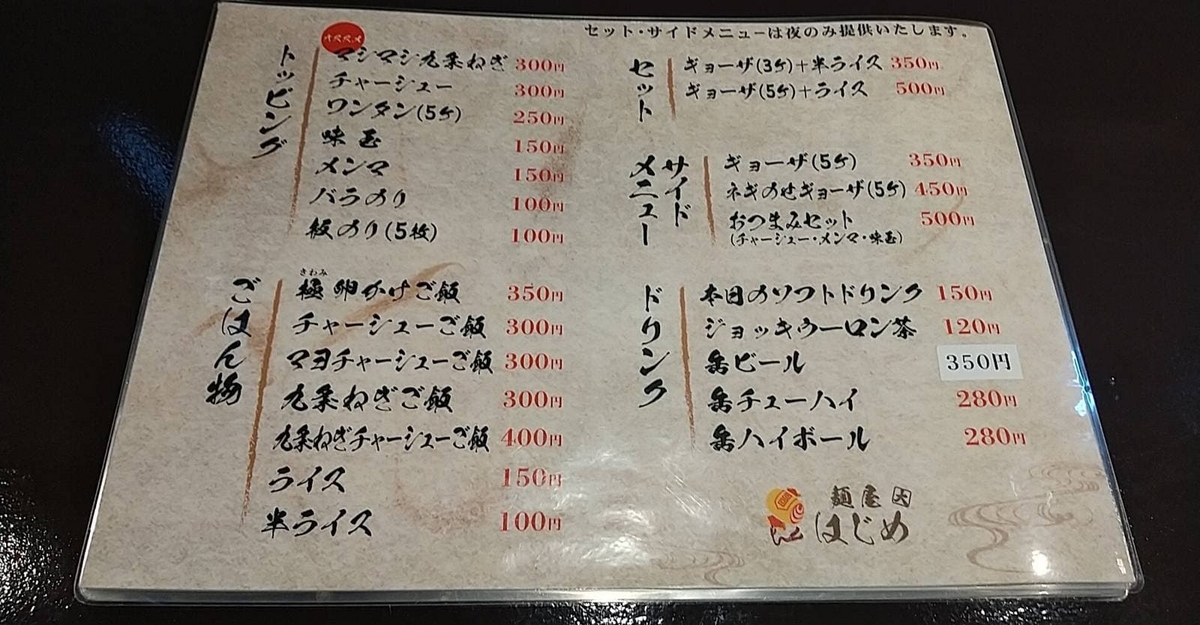 トッピング
マシマシ九条ねぎ 300円
チャーシュー 300円
ワンタン(5ケ) 250円
味玉 150円
メンマ 150円
バラのり 100円
板のり(5枚) 100円
ごはん物
きわみ
極 卵かけご飯 350円
チャーシューご飯 300円
マヨチャーシューご飯 300円
九条ねぎご飯 300円
九条ねぎチャーシューご飯 400円
ライス 150円
半ライス 100円
セット・サイドメニューは夜のみ提供いたします。
セット
ギョーザ(3ケ)+半ライス 350円
ギョーザ(5ケ)+ライス 500円
サイドメニュー
ギョーザ(5ケ) 350円
ネギのせギョーザ(5ケ) 450円
おつまみセット 500円
(チャーシュー・メンマ・味玉)
ドリンク
本日のソフトドリンク 150円
ジョッキウーロン茶 120円
缶ビール 350円
缶チューハイ 280円
缶ハイボール 280円
麺屋
はじめ